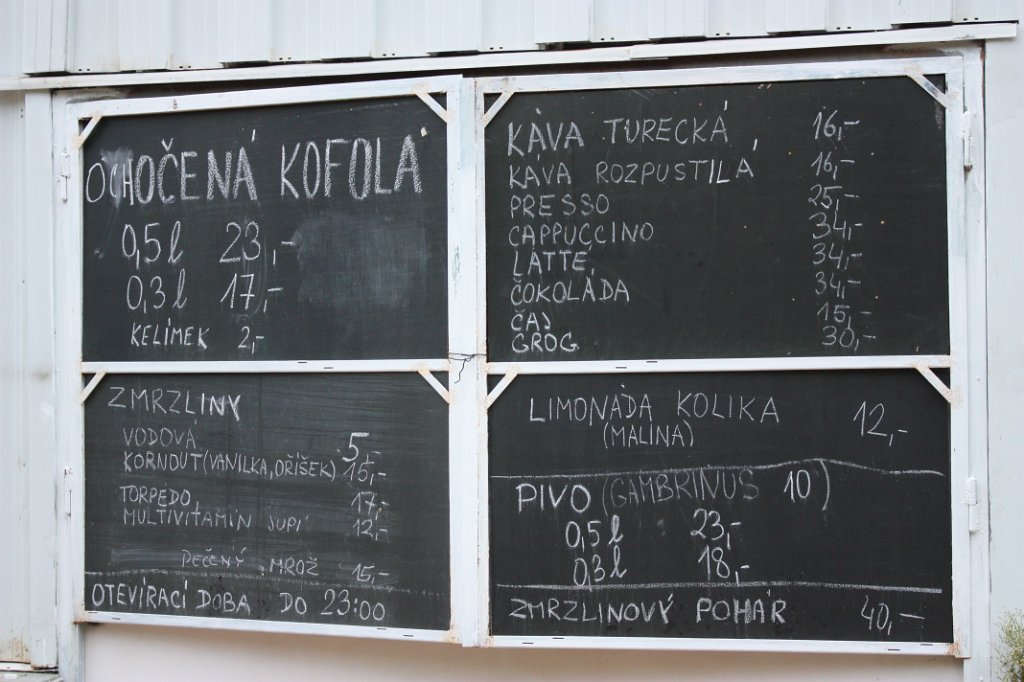 OCHOČENÁ KOFOLA
0,5 l 23,-
0,3 l 17,-
KELÍMEK 2,-
ZMRZLINY
VODOVÁ 5,-
KORNOUT (VANILKA, OŘÍŠEK) 15,-
TORPEDO 17,-
MULTIVITAMÍN SUPÍ 12,-
PEČENÝ MROŽ 15,-
OTEVÍRACÍ DOBA DO 23:00
KÁVA TURECKÁ 16,-
KÁVA ROZPUSTILÁ 16,-
PRESSO 25,-
CAPPUCCINO 34,-
LATTE 34,-
ČOKOLÁDA 34,-
ČAJ 15,-
GROG 30,-
LIMONÁDA KOLIKA 12,-
(MALINA)
PIVO (GAMBRINUS 10)
0,5 l 23,-
0,3 l 18,-
ZMRZLINOVÝ POHÁR 40,-